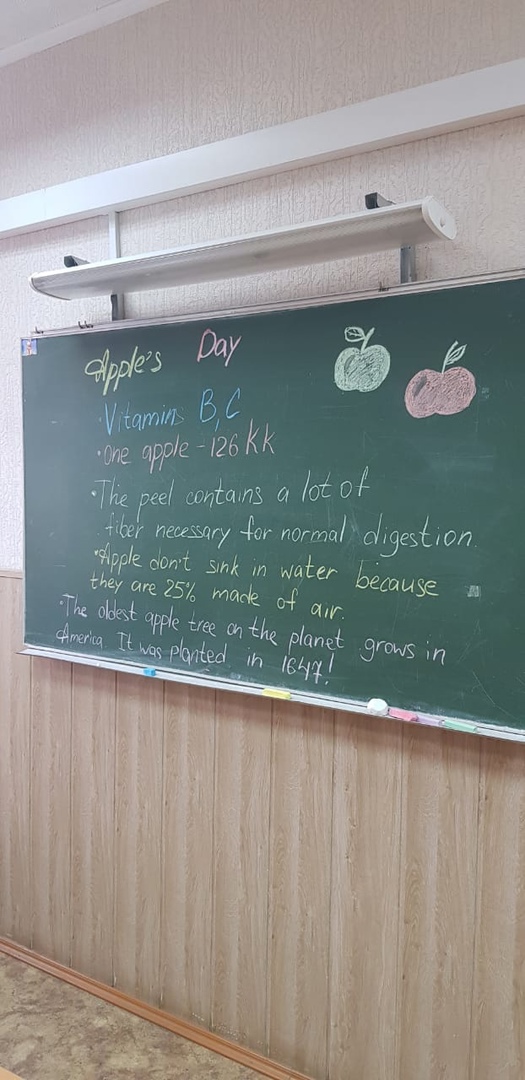 Apple's Day
• Vitamins B, C
• One apple - 126 kk
• The peel contains a lot of
fiber necessary for normal digestion.
• Apple don't sink in water because
they are 25% made of air.
• The oldest apple tree on the planet grows in
America It was planted in 1647!